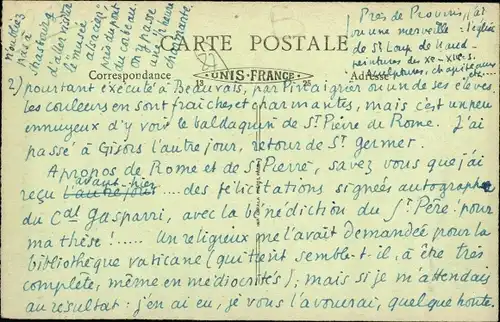 n'oubliez
pas à
Strasbourg
d'aller visiter
le "musée
alsacien"
près du pont
du corbeau
on y passe
une heure
charmante
Près de Provins, j'ai
vu une merveille : l'église
de St Loup de Naud
peintures du XIe - XIIe s.
sculptures, chapiteaux
etc
CARTE POSTALE
87
Correspondance
UNIS-FRANCE
Adresse
2) pourtant exécuté à Beauvais, par Pinaigrier ou un de ses élèves.
les couleurs en sont fraîches et charmantes, mais c'est un peu
ennuyeux d'y voir le baldaquin de St Pierre de Rome. J'ai
passé à Gisors l'autre jour, retour de St Germer.
A propos de Rome et de St Pierre, savez vous que j'ai
avant-hier
reçu l'autre jour .... des félicitations signées autographe
du Cal Gasparri, avec la bénédiction du St. Père pour
ma thèse !..... Un religieux me l'avait demandée pour la
bibliothèque vaticane (qui tient semble-t-il, à être très
complète, même en médiocrités) ; mais si je m'attendais
au résultat : j'en ai eu, je vous l'avouerai, quelque honte.